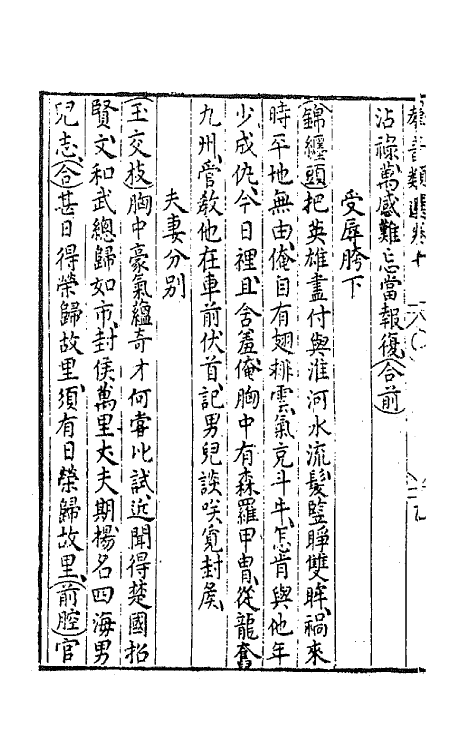 羣音類選卷十
沾祿萬感難忘當報復合前
受辱胯下
錦纏頭把英雄盡付與淮河水流髮鬅睜雙眸禍來
時平地無由俺自有翅排雲氣充斗牛怎肯與他年
少成仇今日裡且含羞俺胸中有森羅甲冑從龍奮
九州管教他在車前伏首記男兒談咲覓封侯
夫妻分別
玉交枝胸中豪氣蘊奇才何嘗比試近聞得楚國招
賢文和武總歸如市封侯萬里大夫期揚名四海男
兒志合甚日得榮歸故里須有日榮歸故里前腔官